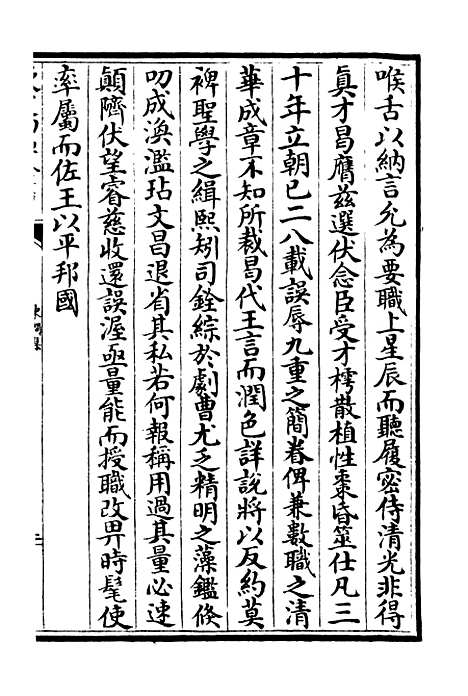 喉舌以納言允為要職上星辰而聽履密侍清光非得
真才曷膺兹選伏念臣受才樗散植性棗昏筮仕凡三
十年立朝已二八載誤辱九重之簡眷俾兼數職之清
華成章不知所裁曷代王言而潤色詳說將以反約莫
裨聖學之緝熙矧司銓綜於劇曹尤乏精明之藻鑑倐
叨成渙濫玷文昌退省其私若何報稱用過其量必速
顛隮伏望睿慈收還誤渥亟量能而授職改畀時髦使
率屬而佐王以平邦國